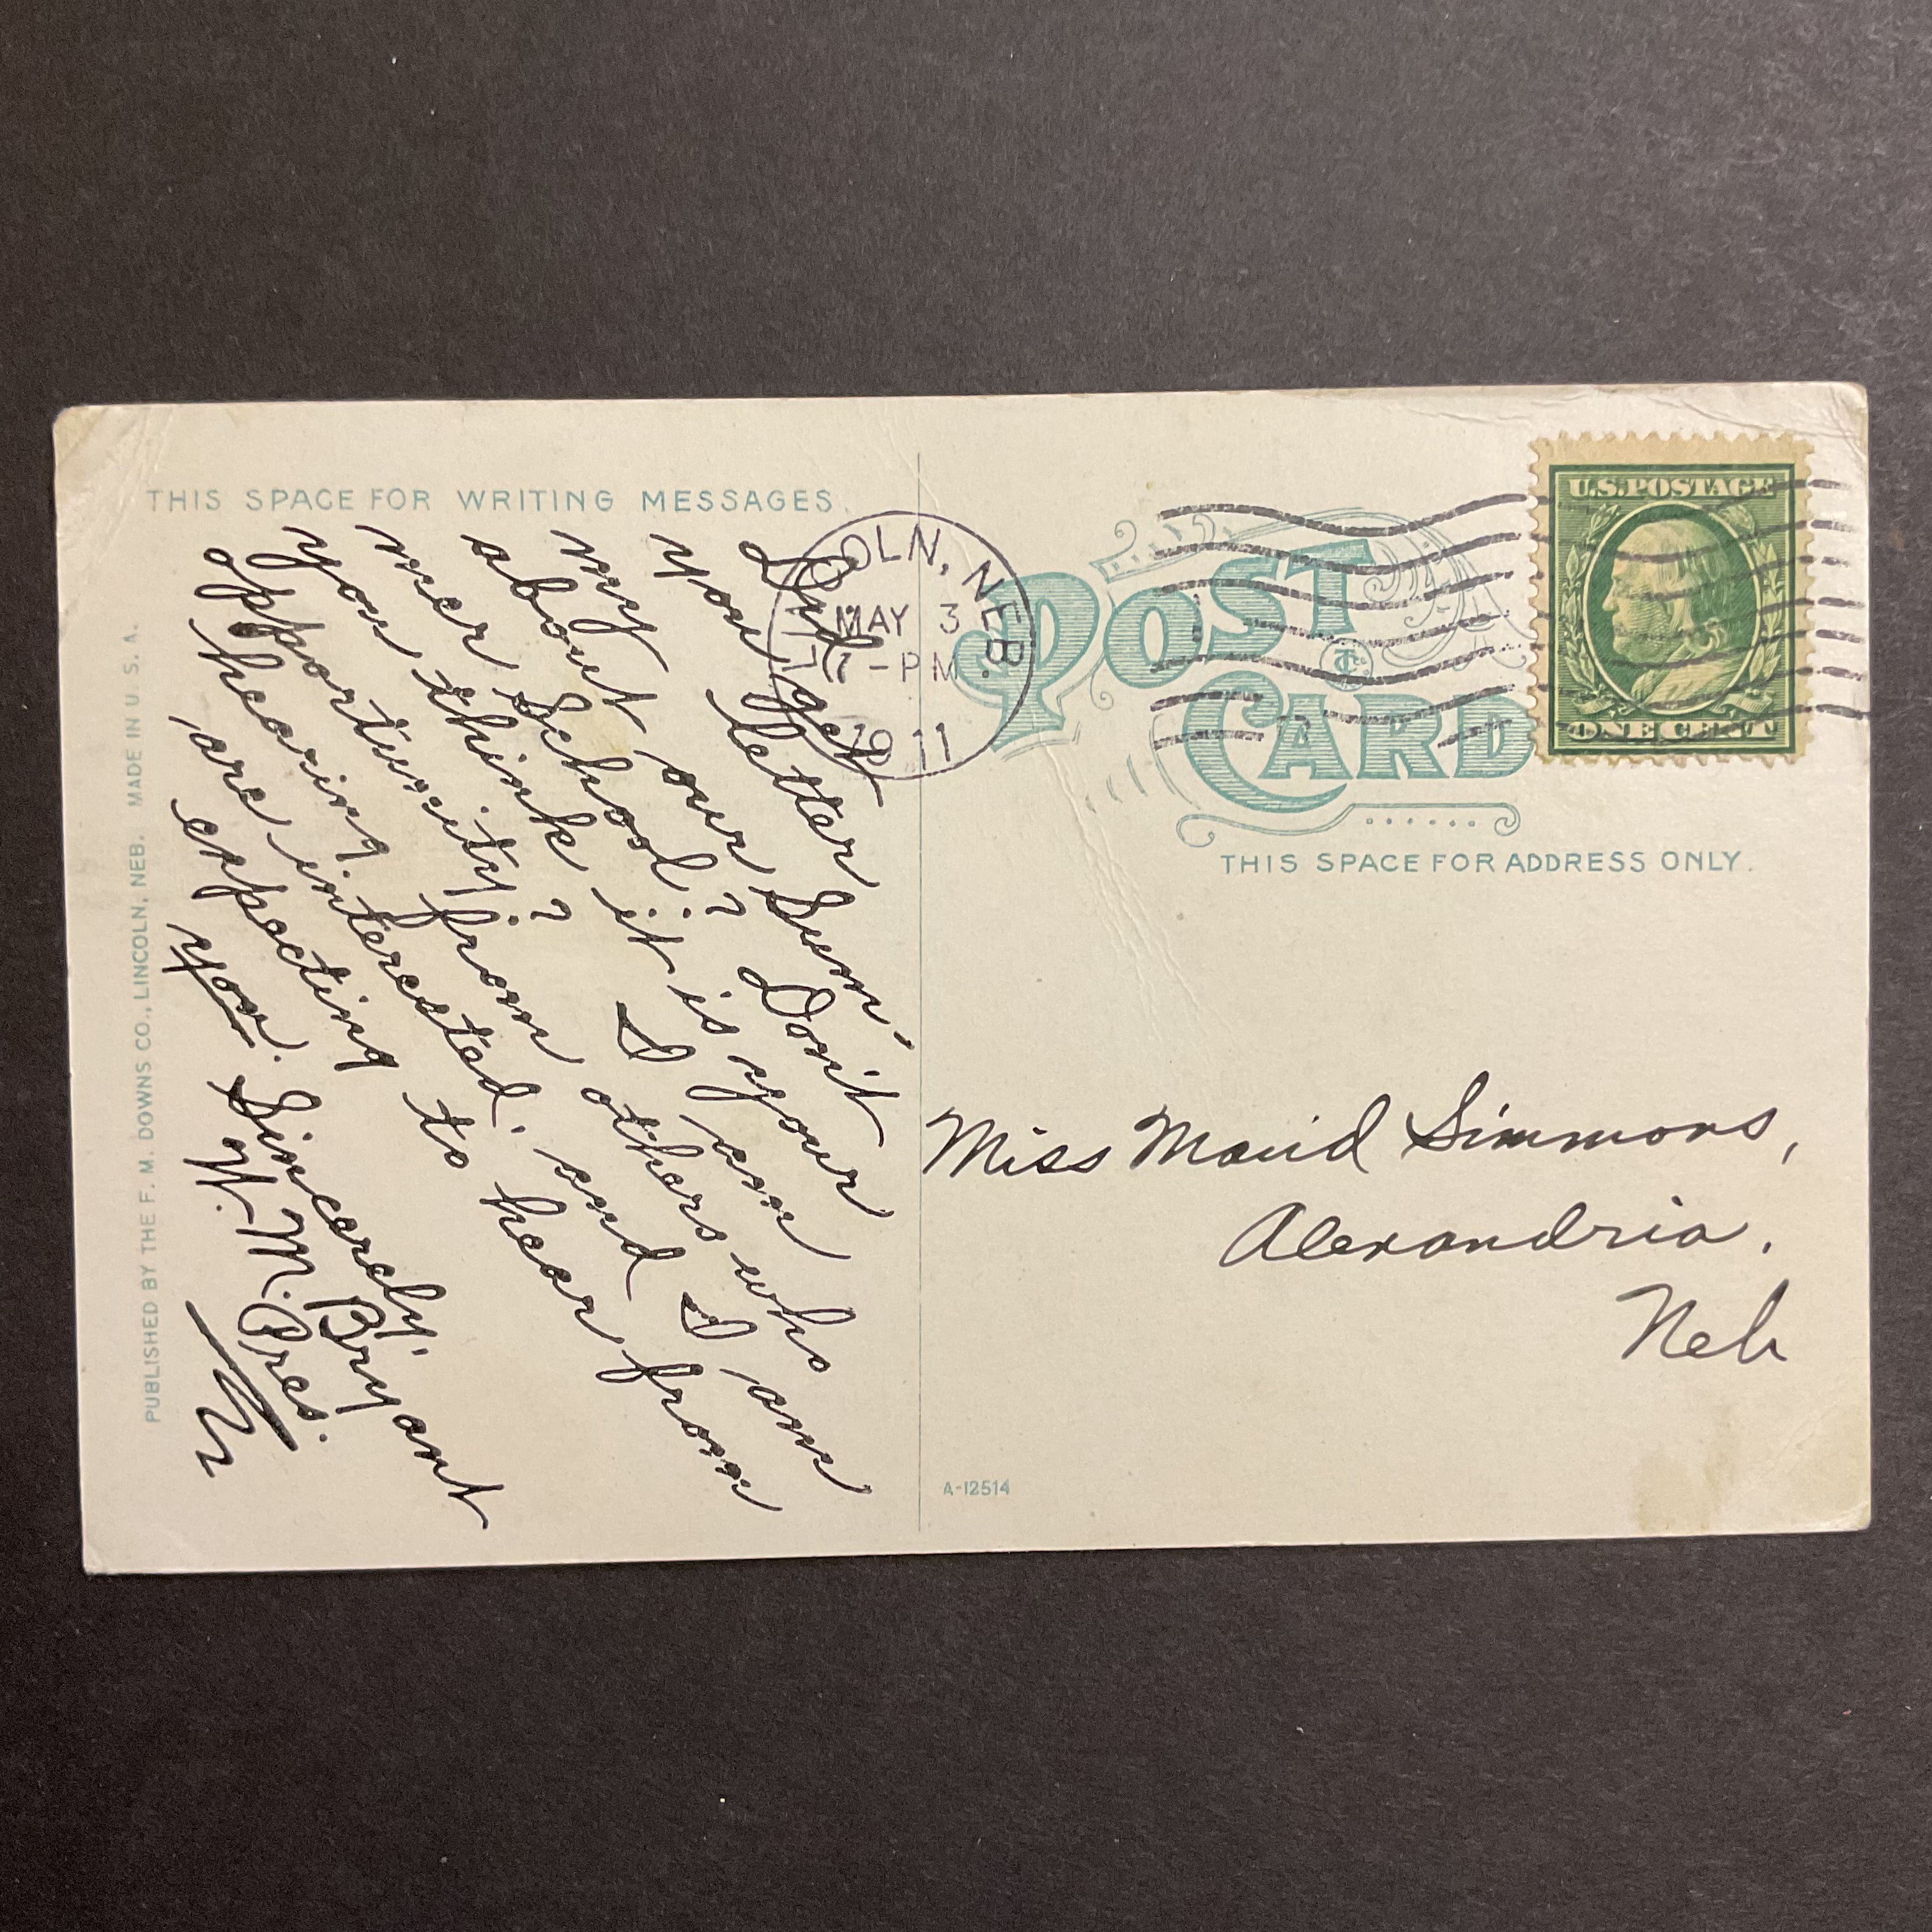 THIS SPACE FOR WRITING MESSAGES
Did
you get
my letter
about our Sum-
mer School? Don't
you think it is your
opportunity? I am
hearing from others who
are interested, and I am
expecting to hear from
you. Sincerely,
W. M. Bryant
Pres.
PUBLISHED BY THE F. M. DOWNS CO., LINCOLN, NEB. MADE IN U. S. A.
OLN, NEB.
MAY 3
7-PM
1911
POST
CARD
U.S. POSTAGE
ONE CENT
THIS SPACE FOR ADDRESS ONLY.
Miss Maud Simmons,
Alexandria.
Neb
A-12514